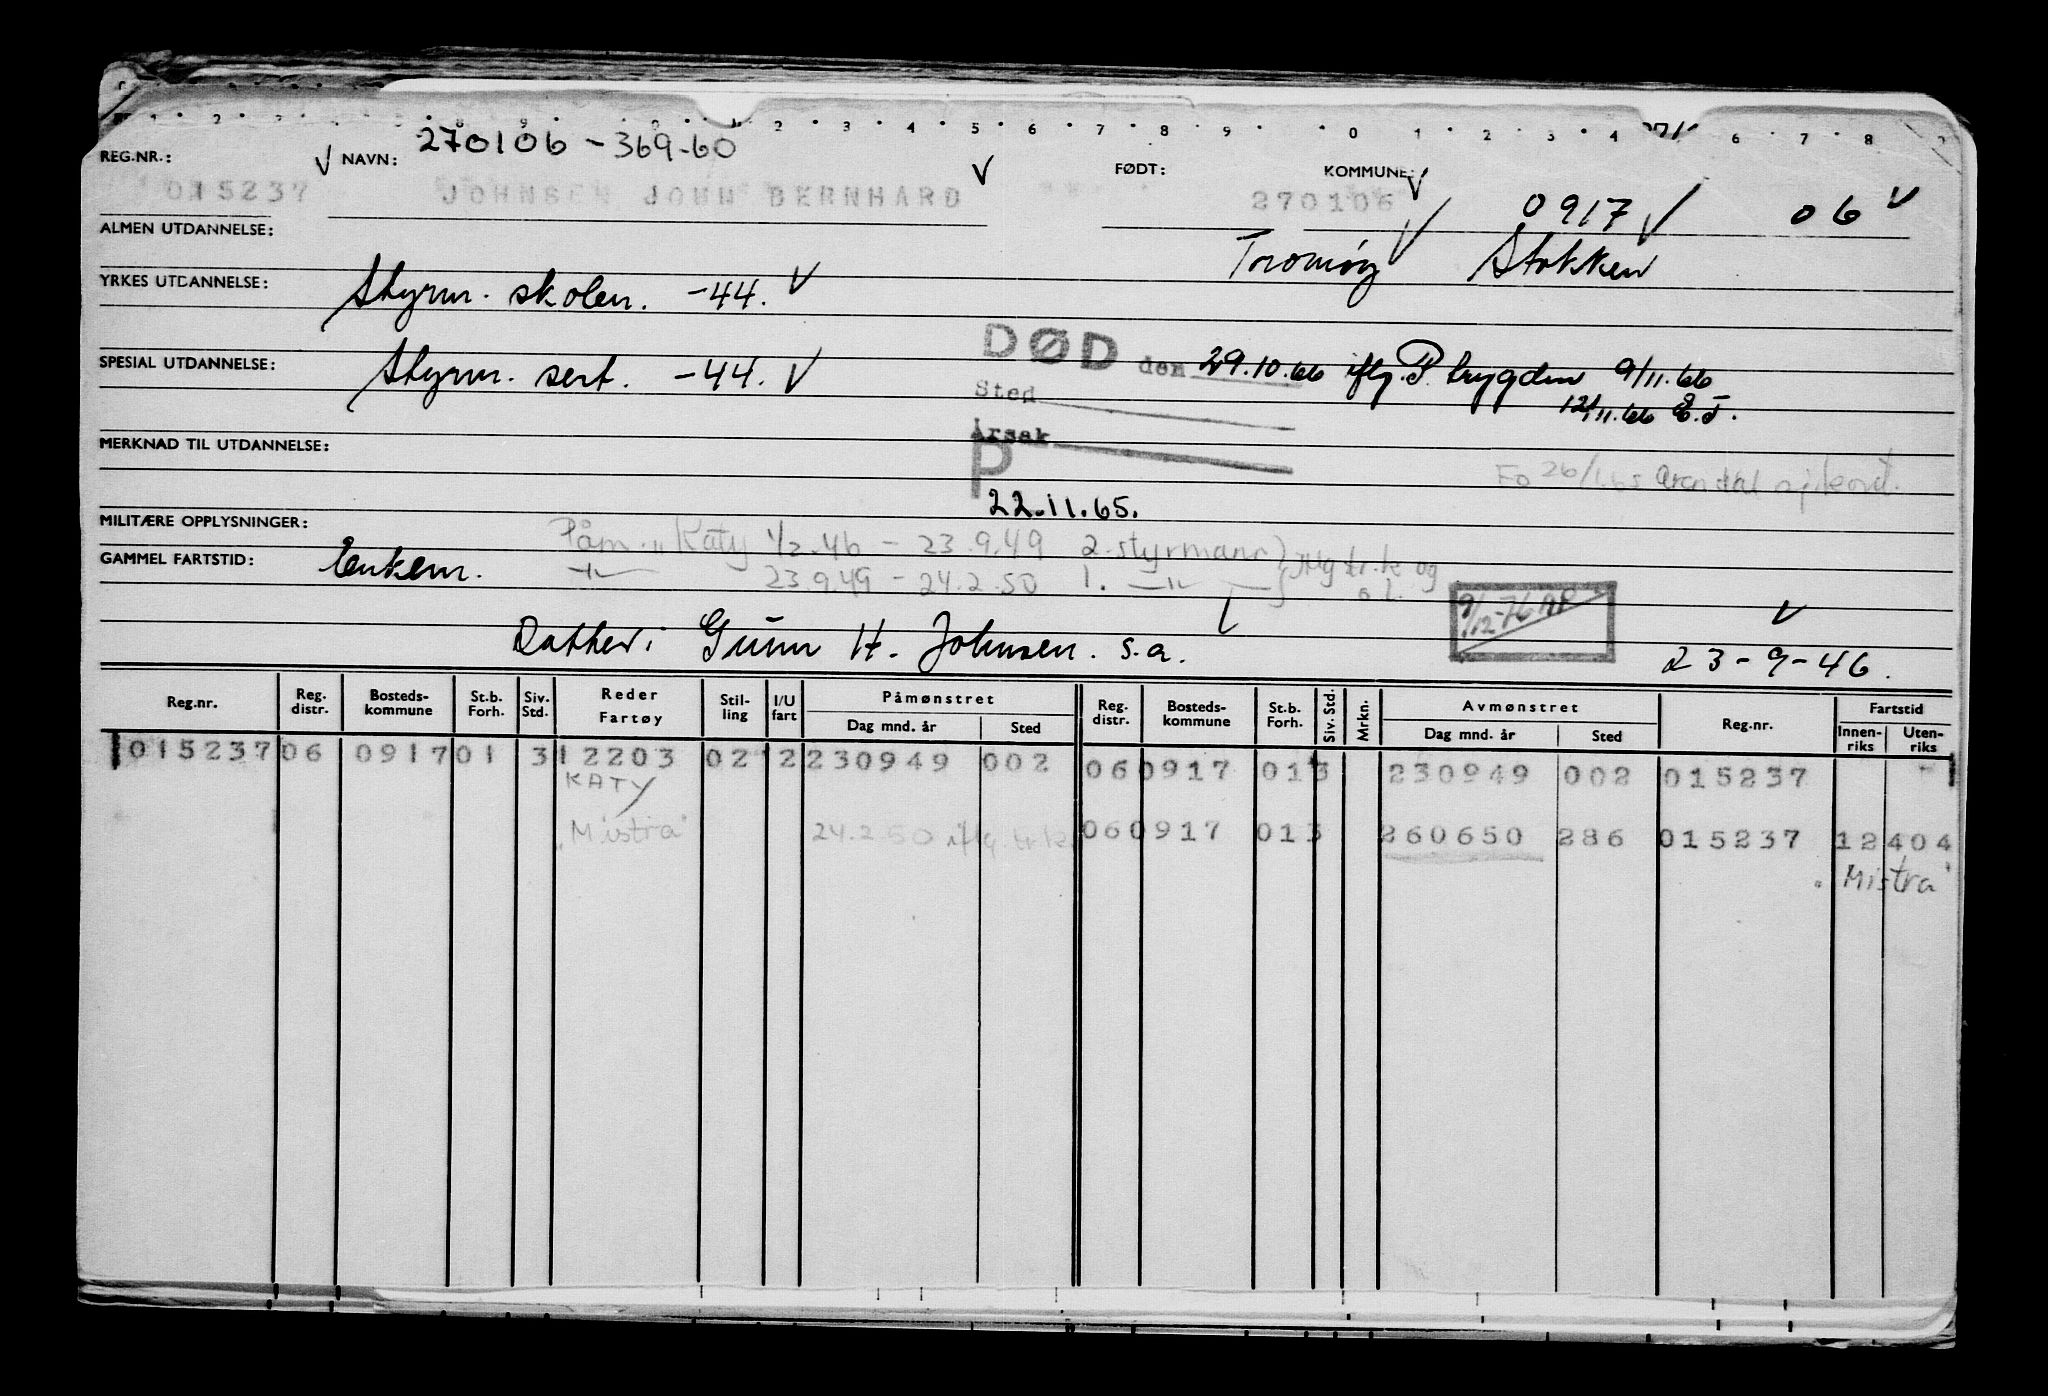 270106 - 369-60
REG.NR.: NAVN: FØDT: KOMMUNE:
015237 JOHNSEN JOHN BERNHARD 270106 0917 06
ALMEN UTDANNELSE: Tromøy Stokken
YRKES UTDANNELSE: Styrm. skolen. -44.
DØD den 29.10.66 iflg. P. trygden 9/11.66
SPESIAL UTDANNELSE: Styrm. sert. -44.
Sted
12/11.66 E.T.
Årsak
MERKNAD TIL UTDANNELSE:
P
Fo 26/1.65 Arendal
22.11.65.
MILITÆRE OPPLYSNINGER:
Påm. "Katy 1/2.46 - 23.9.49 2. styrmann
GAMMEL FARTSTID: Enkem. 23.9.49 - 24.2.50 1. -"- iflg tr.k og
9/12-76
Datter: Gunn H. Johnsen. s.a. 23-9-46.
Reg.nr. Reg. distr. Bosteds-kommune St.b. Forh. Siv. Std. Reder Fartøy Stil-ling I/U fart Påmønstret Dag mnd. år Sted Reg. distr. Bosteds-kommune St.b. Forh. Siv. Std. Mrkn. Avmønstret Dag mnd. år Sted Reg.nr. Fartstid Innen-riks Uten-riks
015237 06 0917 01 3 12203 02 2 230949 002 06 0917 01 3 230949 002 015237
KATY
"Mistra" 24.2.50 iflg. tr.k. 06 0917 01 3 260650 286 015237 12404
"Mistra"